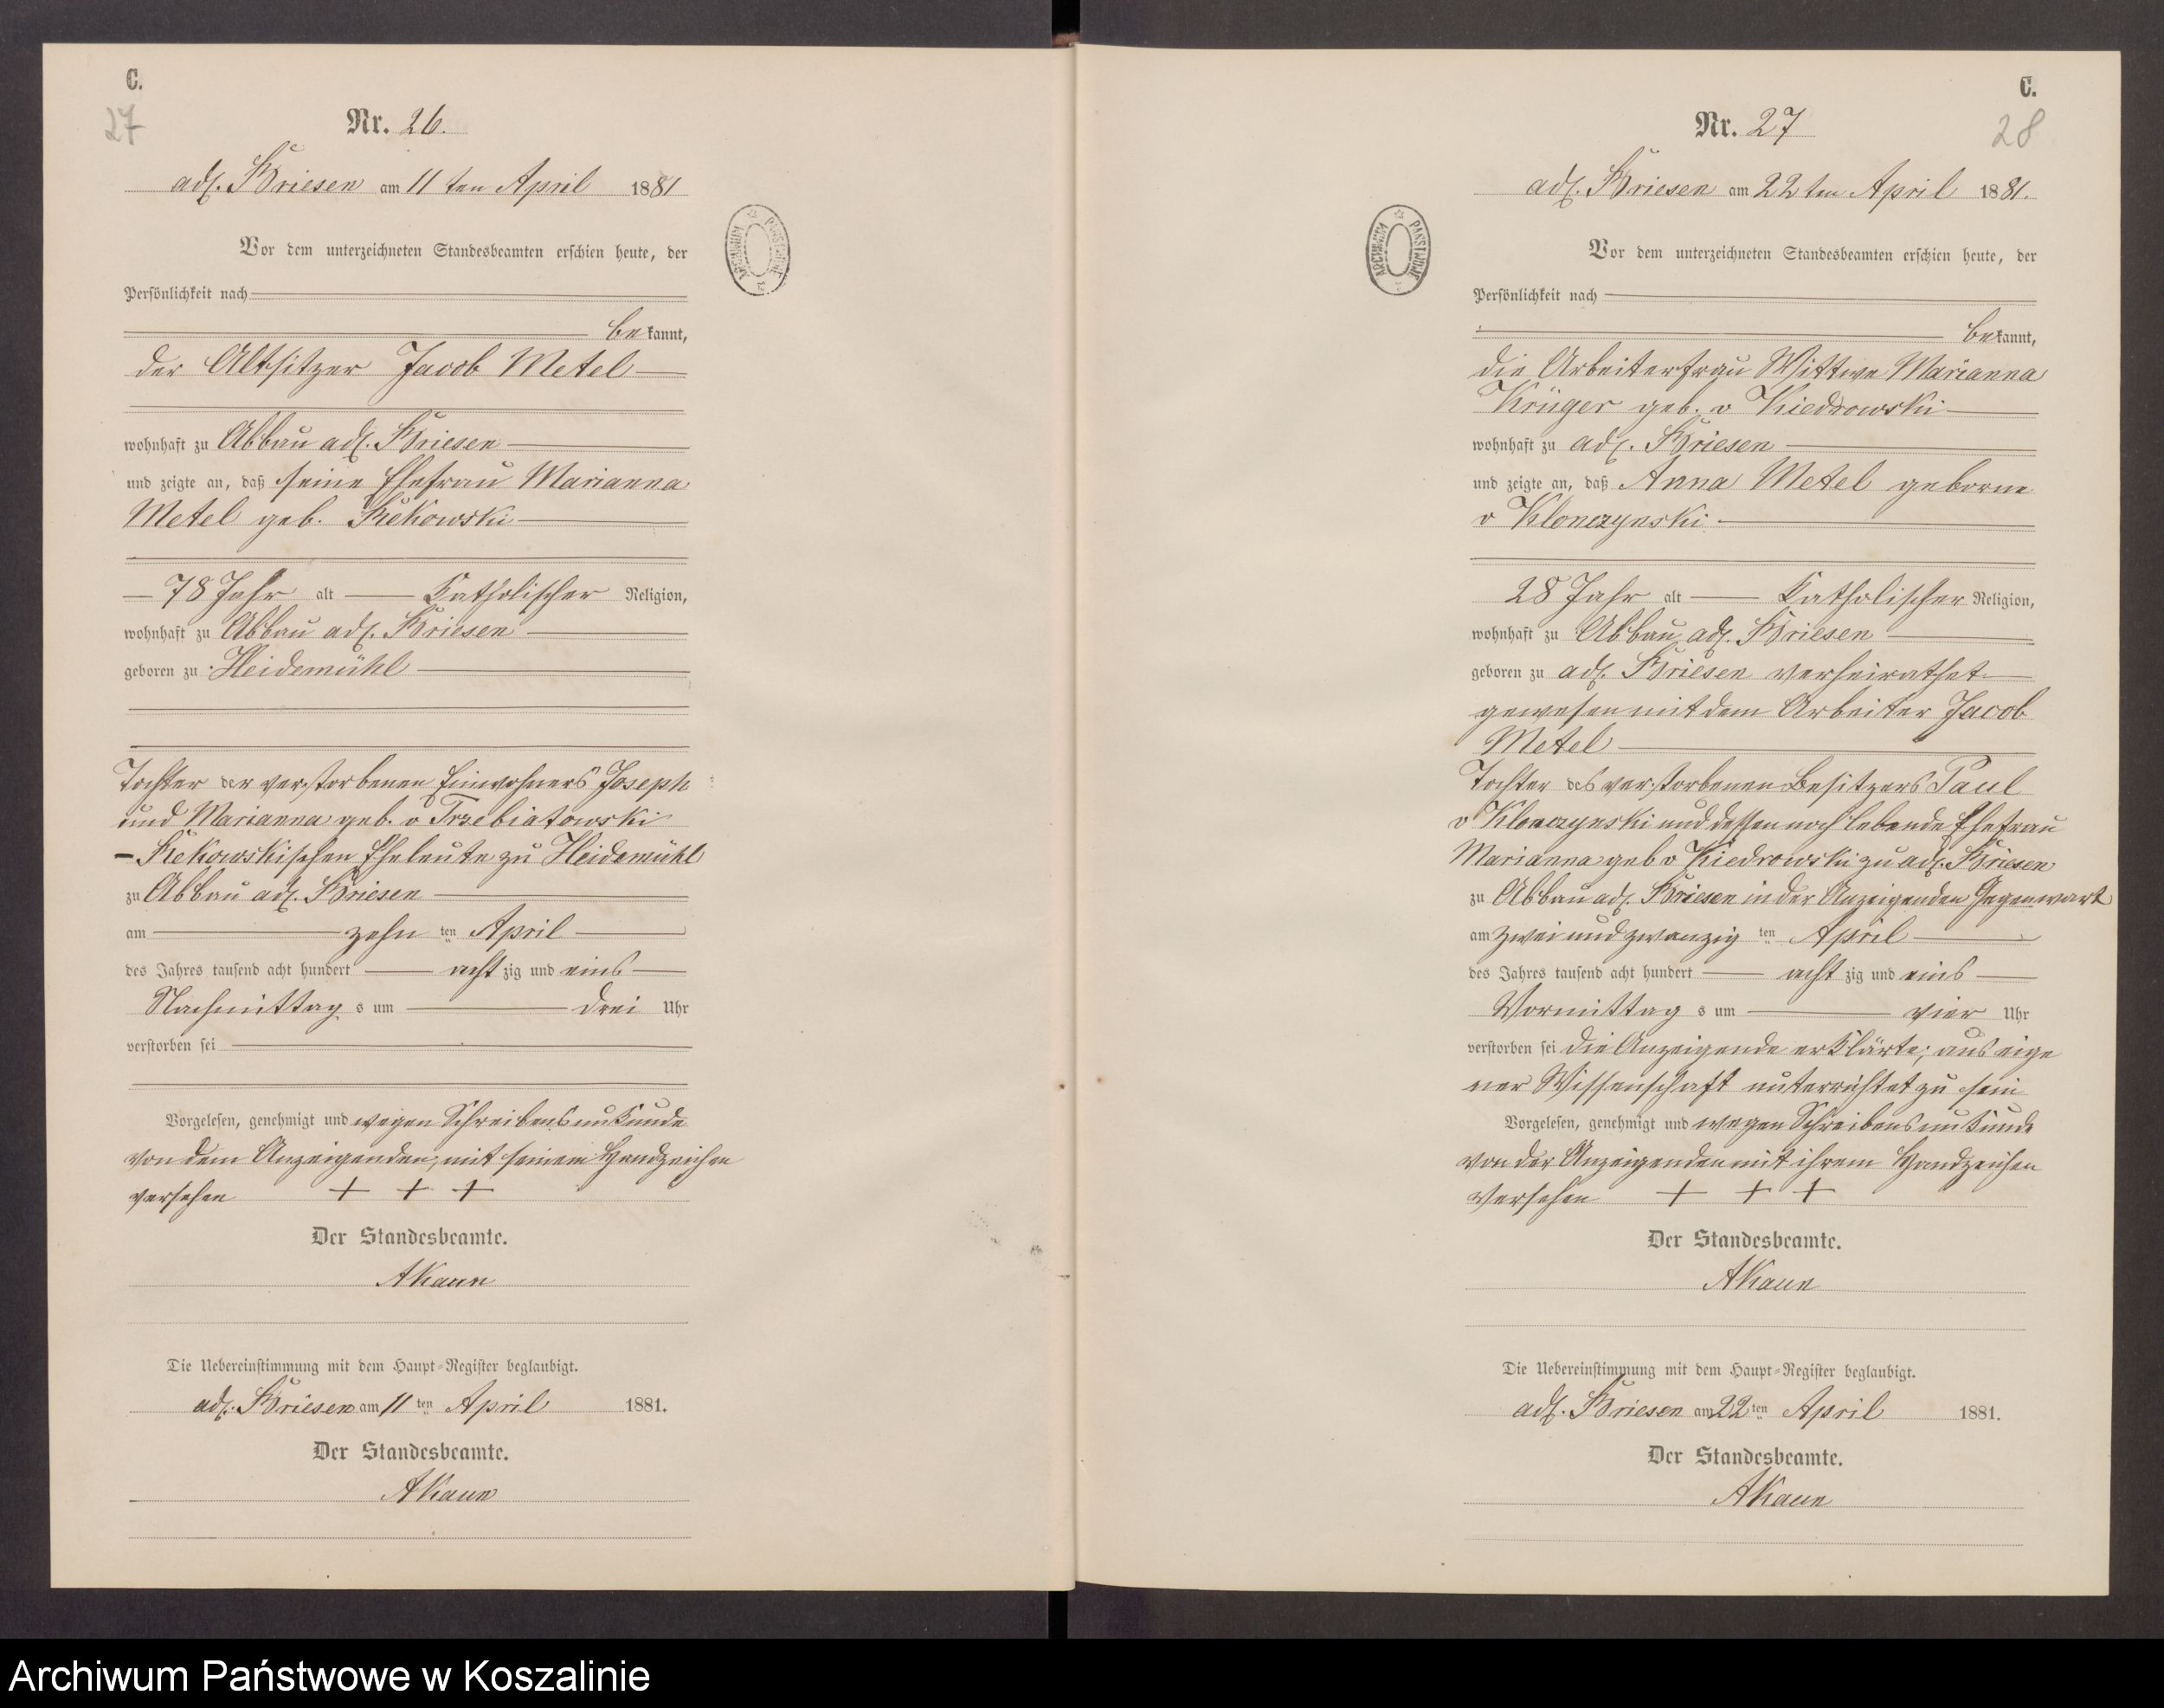 C.
27
Nr. 26.
adl. Briesen am 11 ten April 1881
Vor dem unterzeichneten Standesbeamten erschien heute, der
Persönlichkeit nach
bekannt,
der Altsitzer Jacob Metel
wohnhaft zu Abbau adl. Briesen
und zeigte an, daß seine Ehefrau Marianna
Metel geb. Rekowski
78 Jahr alt Katholischer Religion,
wohnhaft zu Abbau adl. Briesen
geboren zu Heidemühl
Tochter der verstorbenen Einwohners Joseph
und Marianna geb. v Trzebiatowski
Rekowskischen Eheleute zu Heidemühl
zu Abbau adl. Briesen
am zehn ten April
des Jahres tausend acht hundert acht zig und eins
Nachmittag s um drei Uhr
verstorben sei
Vorgelesen, genehmigt und wegen Schreibensunkunde
von dem Anzeigenden, mit seinem Handzeichen
versehen + + +
Der Standesbeamte.
AKaun
Die Uebereinstimmung mit dem Haupt-Register beglaubigt.
adl. Briesen am 11 ten April 1881.
Der Standesbeamte.
AKaun
ARCHIWUM PAŃSTWOWE
C.
28
Nr. 27
adl. Briesen am 22 ten April 1881.
Vor dem unterzeichneten Standesbeamten erschien heute, der
Persönlichkeit nach
bekannt,
die Arbeiterfrau Wittwe Marianna
Krüger geb. v Kiedrowski
wohnhaft zu adl. Briesen
und zeigte an, daß Anna Metel geborne
v Klonczynski
28 Jahr alt Katholischer Religion,
wohnhaft zu Abbau adl. Briesen
geboren zu adl. Briesen verheirathet
gewesen mit dem Arbeiter Jacob
Metel
Tochter des verstorbenen Besitzers Paul
v Klonczynski und dessen noch lebende Ehefrau
Marianna geb v Kiedrowski zu adl. Briesen
zu Abbau adl. Briesen in der Anzeigenden Gegenwart
am zwei und zwanzig ten April
des Jahres tausend acht hundert acht zig und eins
Vormittag s um vier Uhr
verstorben sei die Anzeigende erklärte, aus eige
ner Wissenschaft unterrichtet zu sein
Vorgelesen, genehmigt und wegen Schreibensunkunde
von der Anzeigenden mit ihrem Handzeichen
versehen + + +
Der Standesbeamte.
AKaun
Die Uebereinstimmung mit dem Haupt-Register beglaubigt.
adl. Briesen am 22 ten April 1881.
Der Standesbeamte.
AKaun
ARCHIWUM PAŃSTWOWE
Archiwum Państwowe w Koszalinie